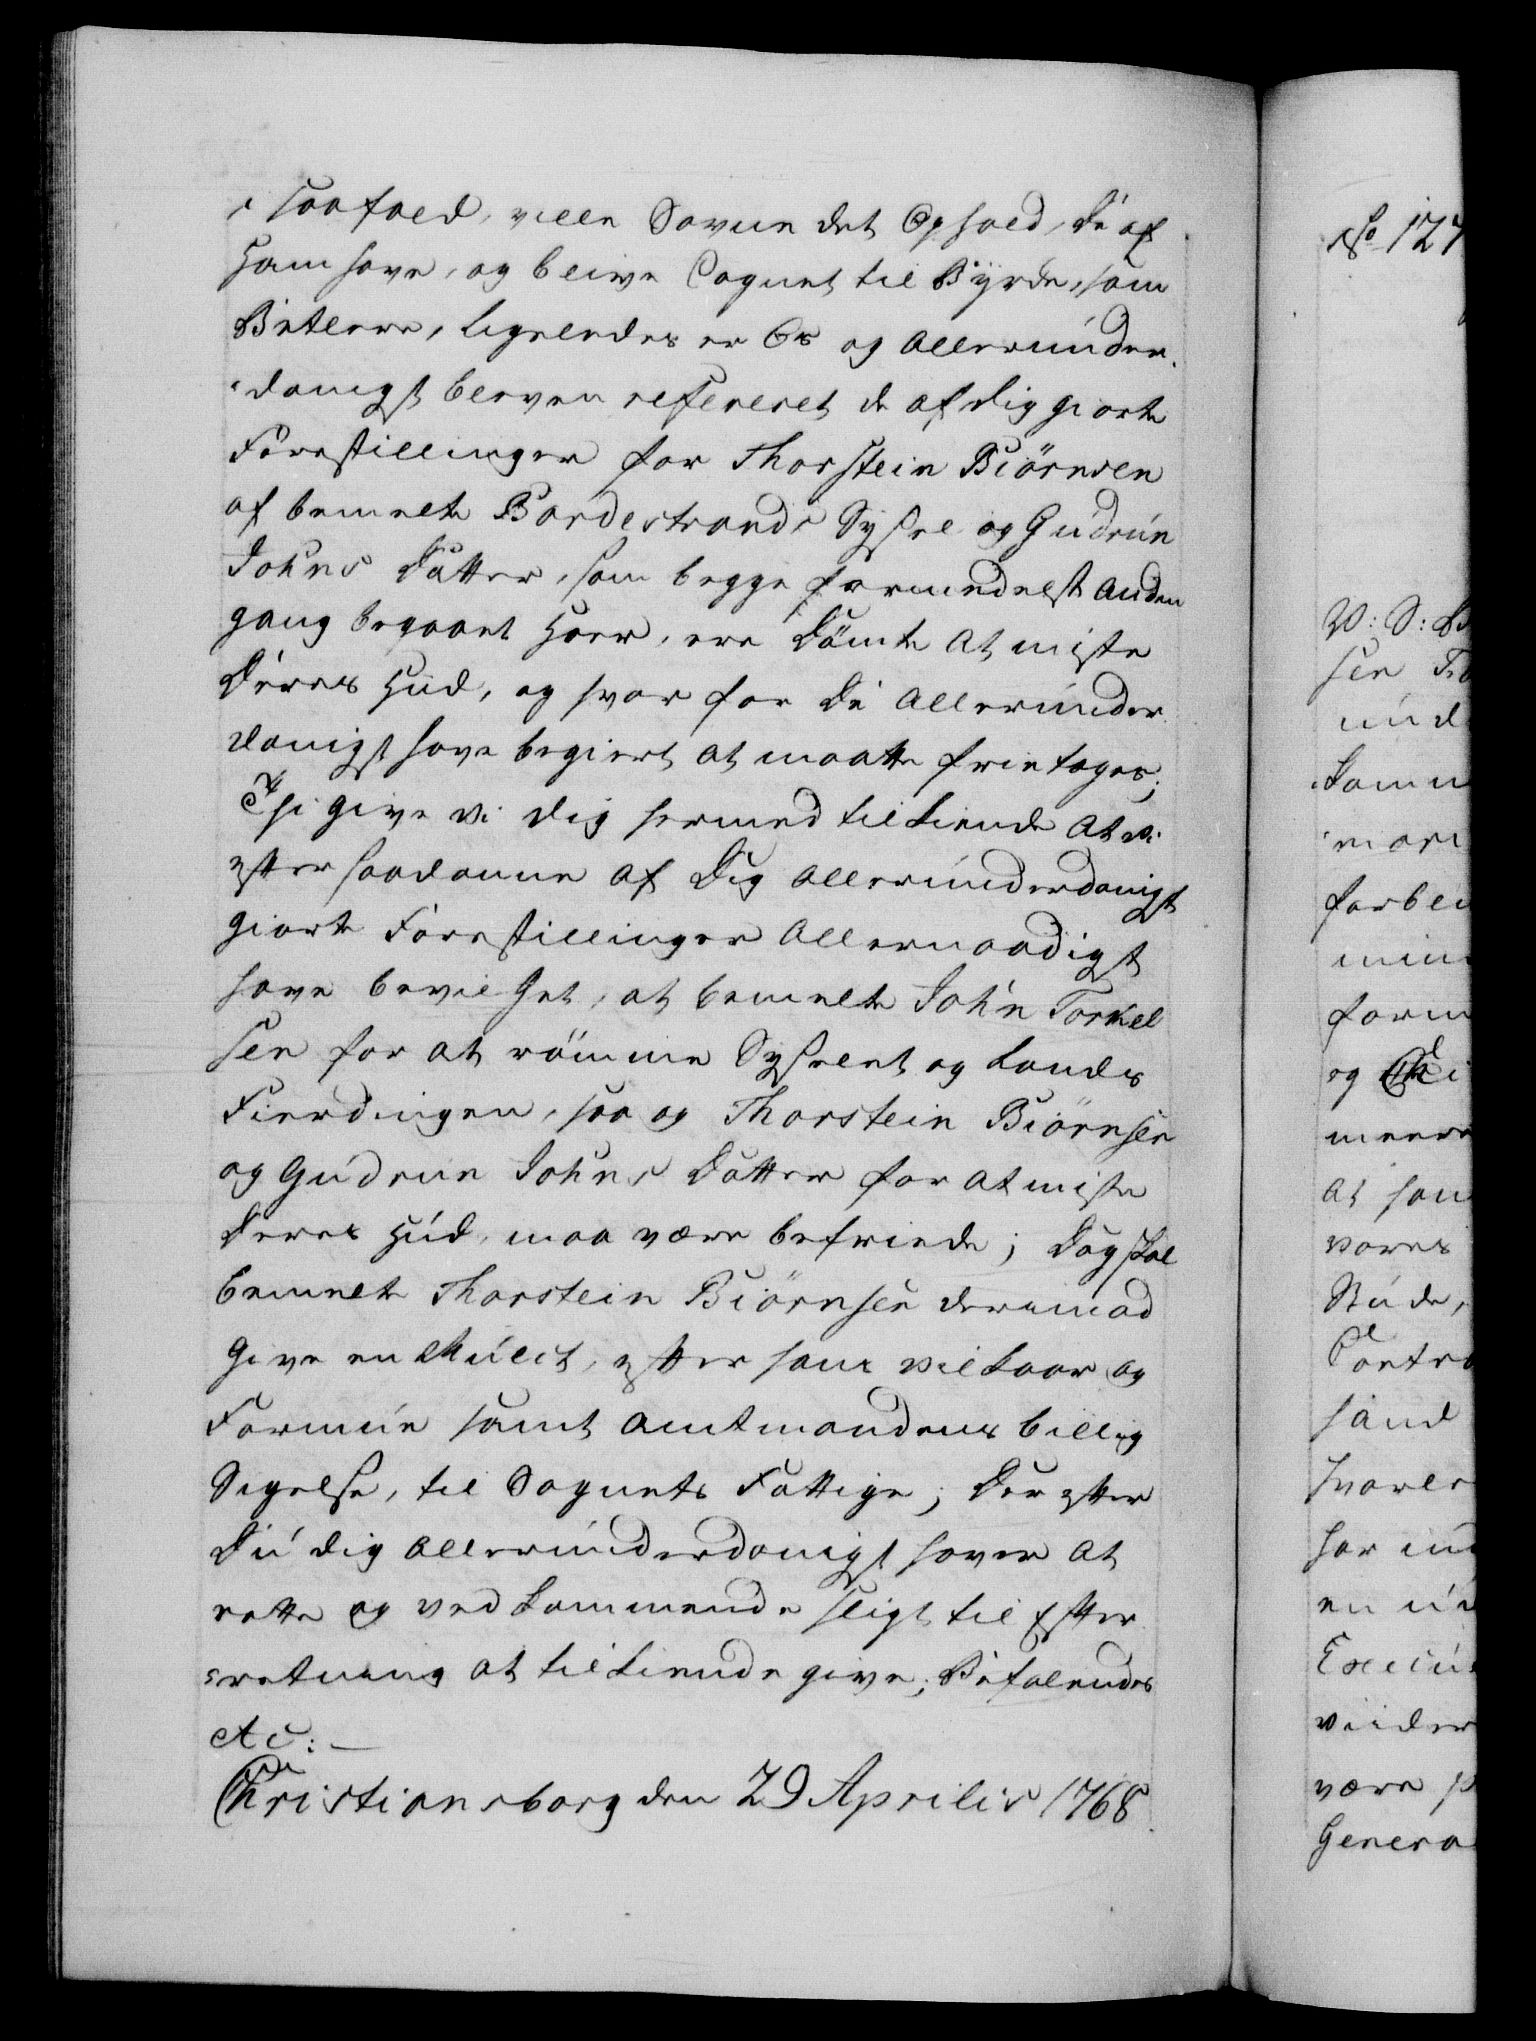 i saafald, ville Savne det Ophold, de af
Ham have, og blive Sognet til Byrde, som
Betlere, ligeledes er Os og allerunder-
danigst bleven refereret de af dig giorte
Forestillinger for Thorstein Biörnsen
af bemelte Bardestrands Syssel og Gudrun
Johns Datter, som begge formedelst anden
gang begaaet Hoer, ere Dömte at miste
Deres Hud, og hvor for De allerunder
danigst have begiert at maatte fritages;
Thi give Vi dig hermed tilkiende at Vi
efter saadanne af Dig allerunderdanigst
giorte Forestillinger Allernaadigst
have bevilget, at bemelte John Torkel
sen for at römme Sysselet og Lands
Fierdingen, saa og Thorstein Biörnsen
og Gudrun Johns Datter for at miste
Deres Hud, maa være befriede; Dog skal
bemelte Thorstein Biörnsen derimod
Give en Mulct, efter hans Vilkaar og
Formue samt Amtmandens billig
Sigelse, til Sognets Fattige; Der efter
Du dig allerunderdanigst haver at
rette og ved kommende sligt til Efter
retning at tilkiende give; Befalendes
etc:
Christiansborg den 29 Aprilis 1768.
No 127
V: S:
sen
und
famm
forbei
min
form
og
meere
at han
vores
Stude,
Contra
sand
har
en
Execu
viider
være
Genera